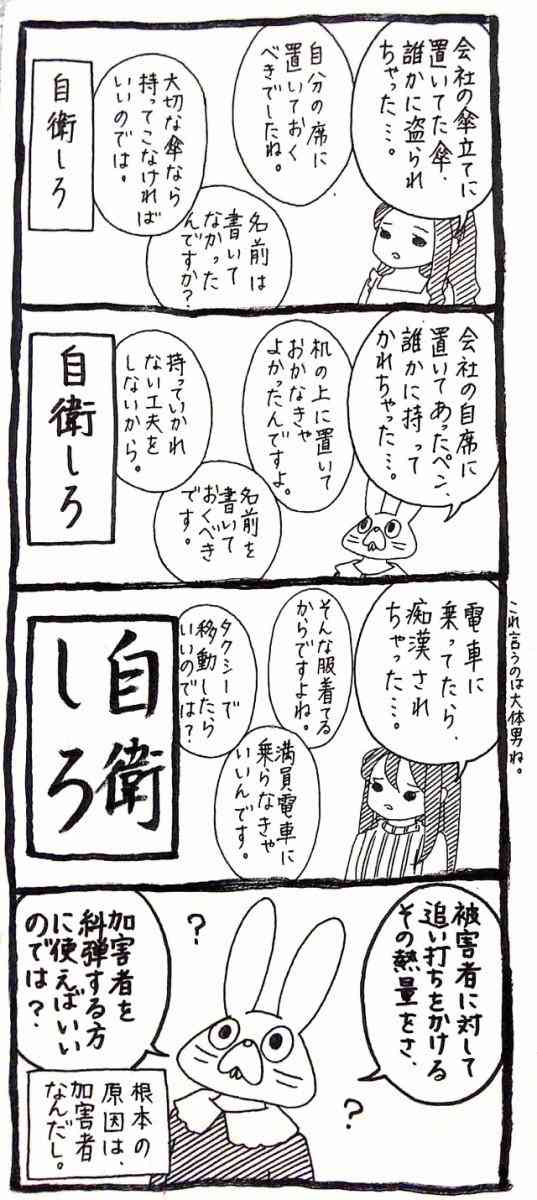 会社の傘立てに
置いてた傘、
誰かに盗られ
ちゃった…。
自分の席に
置いておく
べきでしたね。
名前は
書いて
なかった
んですか？
大切な傘なら
持ってこなければ
いいのでは。
自衛しろ
会社の自席に
置いてあったペン、
誰かに持って
かれちゃった…。
机の上に置いて
おかなきゃ
よかったんですよ。
名前を
書いて
おくべき
です。
持っていかれ
ない工夫を
しないから。
自衛しろ
これ言うのは大体男ね。
電車に
乗ってたら、
痴漢され
ちゃった…。
そんな服着てる
からですよね。
満員電車に
乗らなきゃ
いいんです。
タクシーで
移動したら
いいのでは？
自衛
しろ
被害者に対して
追い打ちをかける
その熱量をさ、
？
？
加害者を
糾弾する方
に使えばいい
のでは？
根本の
原因は、
加害者
なんだし。